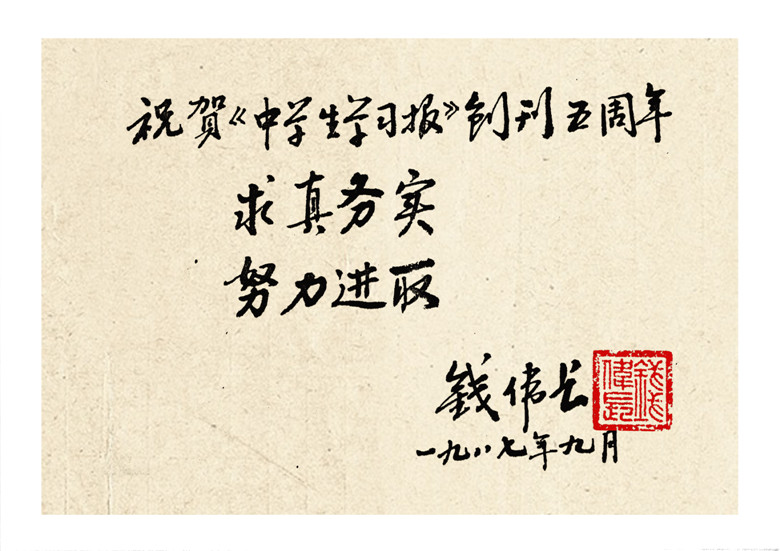 祝賀《中学生学习报》创刊五周年
求真务实
努力进取
錢伟长
錢偉長
一九八七年九月